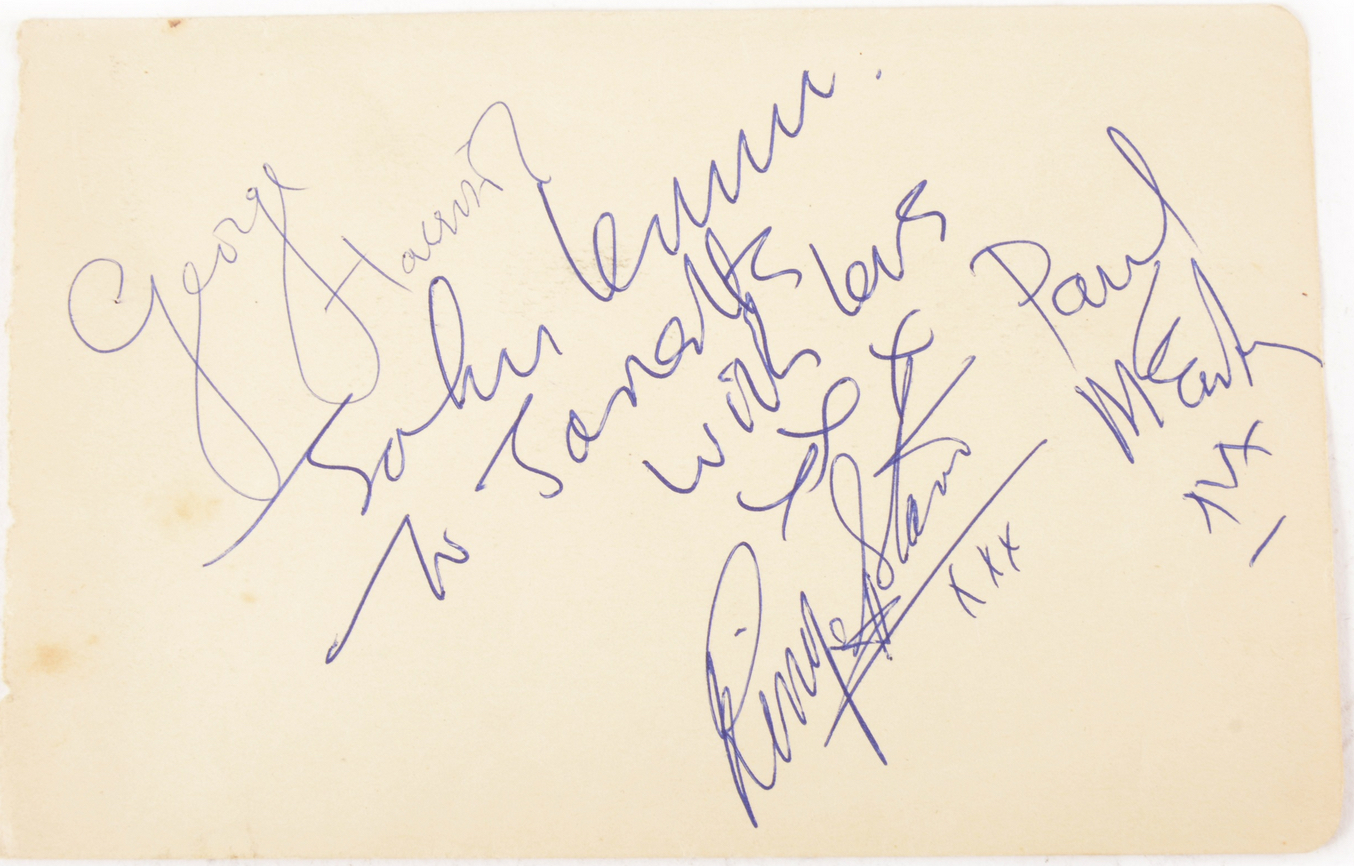 George Harrison
John Lennon
To
with love
Paul
McCartney
Ringo Starr
xxx